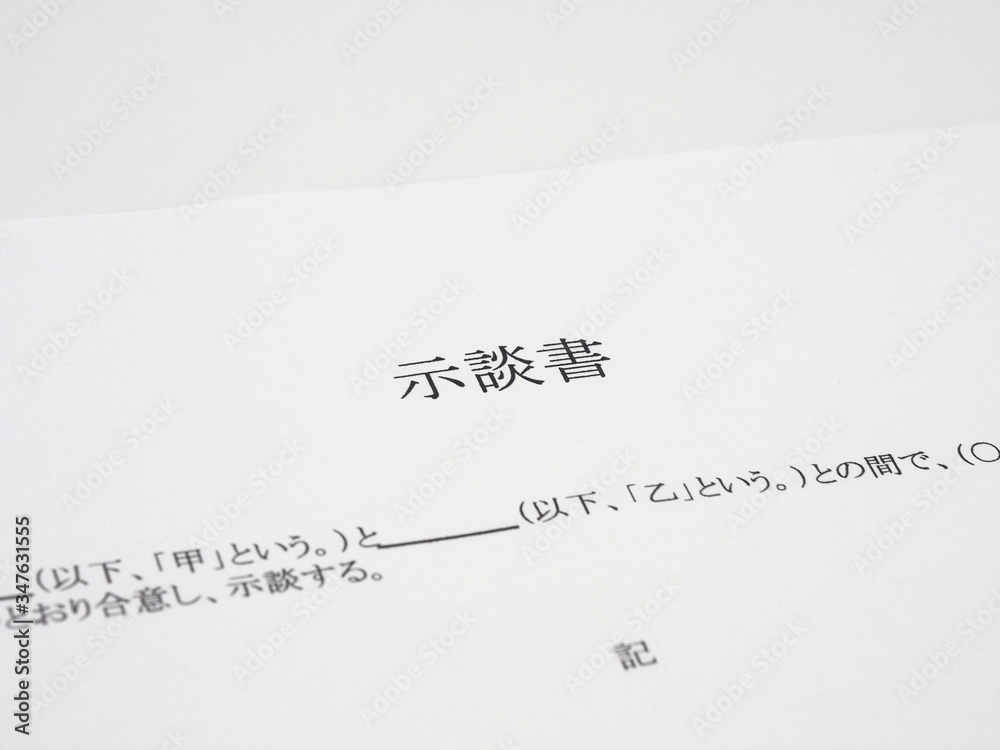 示談書
(以下、「甲」という。)と______(以下、「乙」という。)との間で、(○
とおり合意し、示談する。
記
Adobe Stock | #347631555